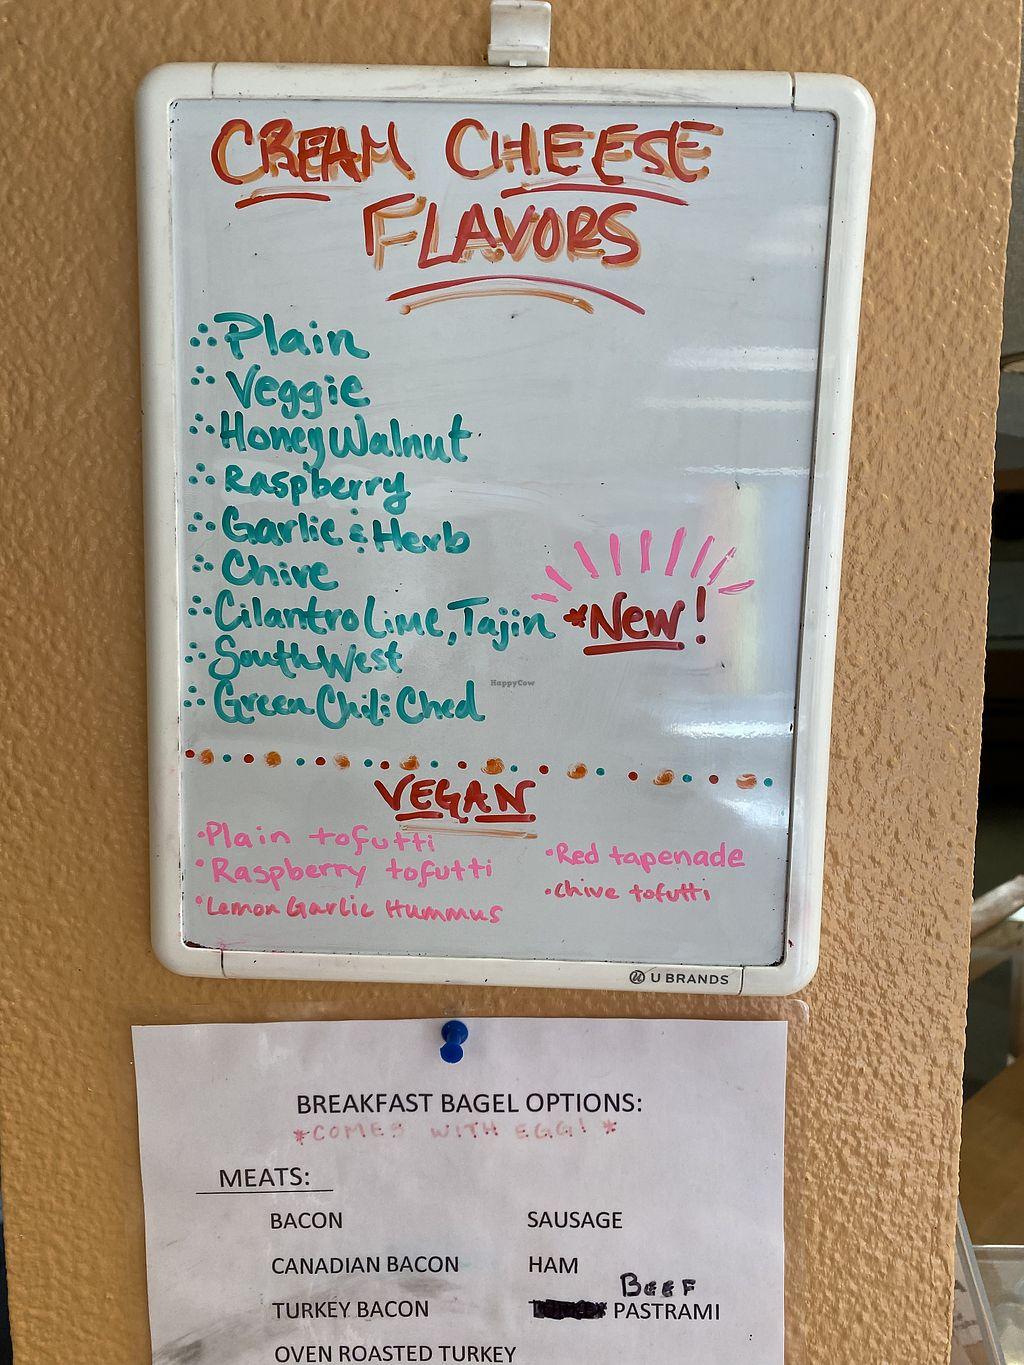 CREAM CHEESE
FLAVORS
Plain
Veggie
Honey Walnut
Raspberry
Garlic & Herb
Chive
Cilantro Lime, Tajin *New!
SouthWest
Green Chili Ched
HappyCow
VEGAN
•Plain tofutti
•Raspberry tofutti
•Lemon Garlic Hummus
•Red tapenade
•Chive tofutti
U BRANDS
BREAKFAST BAGEL OPTIONS:
*COMES WITH EGG! *
MEATS:
BACON
CANADIAN BACON
TURKEY BACON
OVEN ROASTED TURKEY
SAUSAGE
HAM
BEEF
PASTRAMI